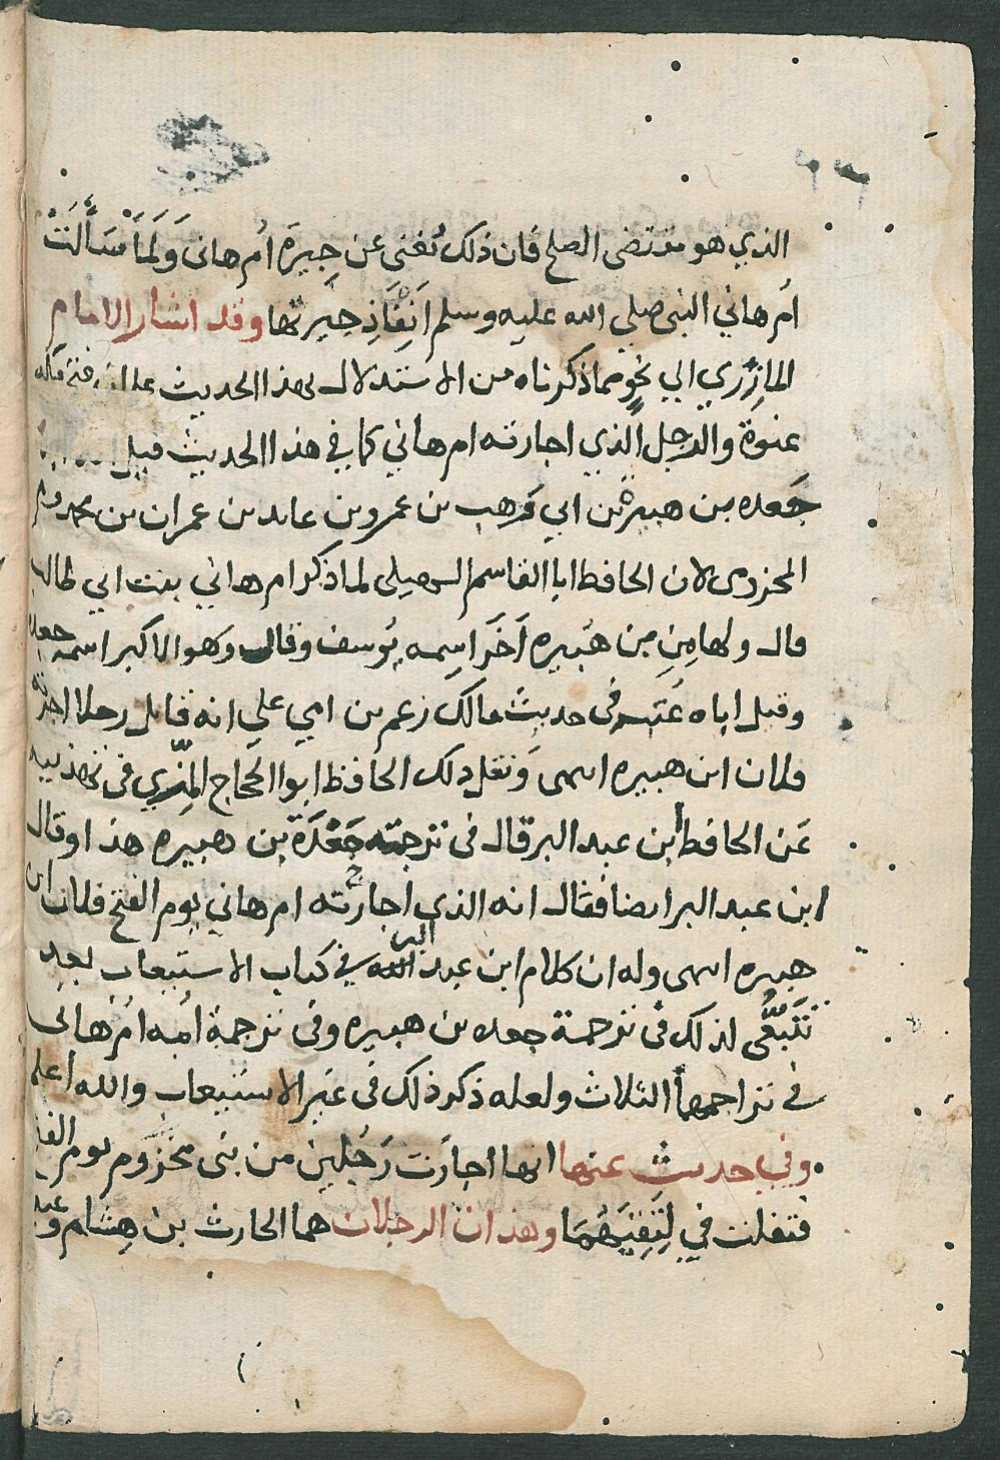 الذي هو مقتضى الصلح فان ذلك تغنى عن جيرة أم هانى ولما سألت
ام هاني النبي صلي الله عليه وسلم انفاذ جيرتها وقد اشار الامام
المازري الي نحو مما ذكرناه من الاستدلال بهذا الحديث علي ان فتح مكه
عنوة والرجل الذي اجارته ام هاني كما في هذا الحديث قيل
جعده بن هبيرة بن ابي وهب بن عمرو بن عايد بن عمران بن
المخزومى لان الحافظ ابا القاسم السهيلى لما ذكر ام هاني بنت ابي طالب
قال ولها من بن هبيره اخر اسمه يوسف وقال وهو الاكبر اسمه جعدة
وقيل اياه عنته فى حديث مالك زعم بن امي علي انه قاتل رجلا اجرته
فلان ابن هبيره انتهى ونقل ذلك الحافظ ابو الحجاج المزي فى تهذيبه
عن الحافظ ابن عبد البر قال فى ترجمته جعدة بن هبيره هذا وقال
ابن عبد البر ايضا فقال انه الذي اجارته ام هاني يوم الفتح فلان ابن
هبيره انتهى وله ان كلام ابن عبد البر الله في كتاب الاستيعاب بعد
تتبعى لذلك فى ترجمة جعده بن هبيره وفى ترجمة امه ام هانى
في تراجمها الثلاث ولعله ذكر ذلك فى غير الاستيعاب والله اعلم
وفي حديث عنها انها اجارت رجلين من بنى مخزوم يوم الفتح
فتفلت في لتغنيهما وهذان الرجلان هما الحارث بن هشام وعبد